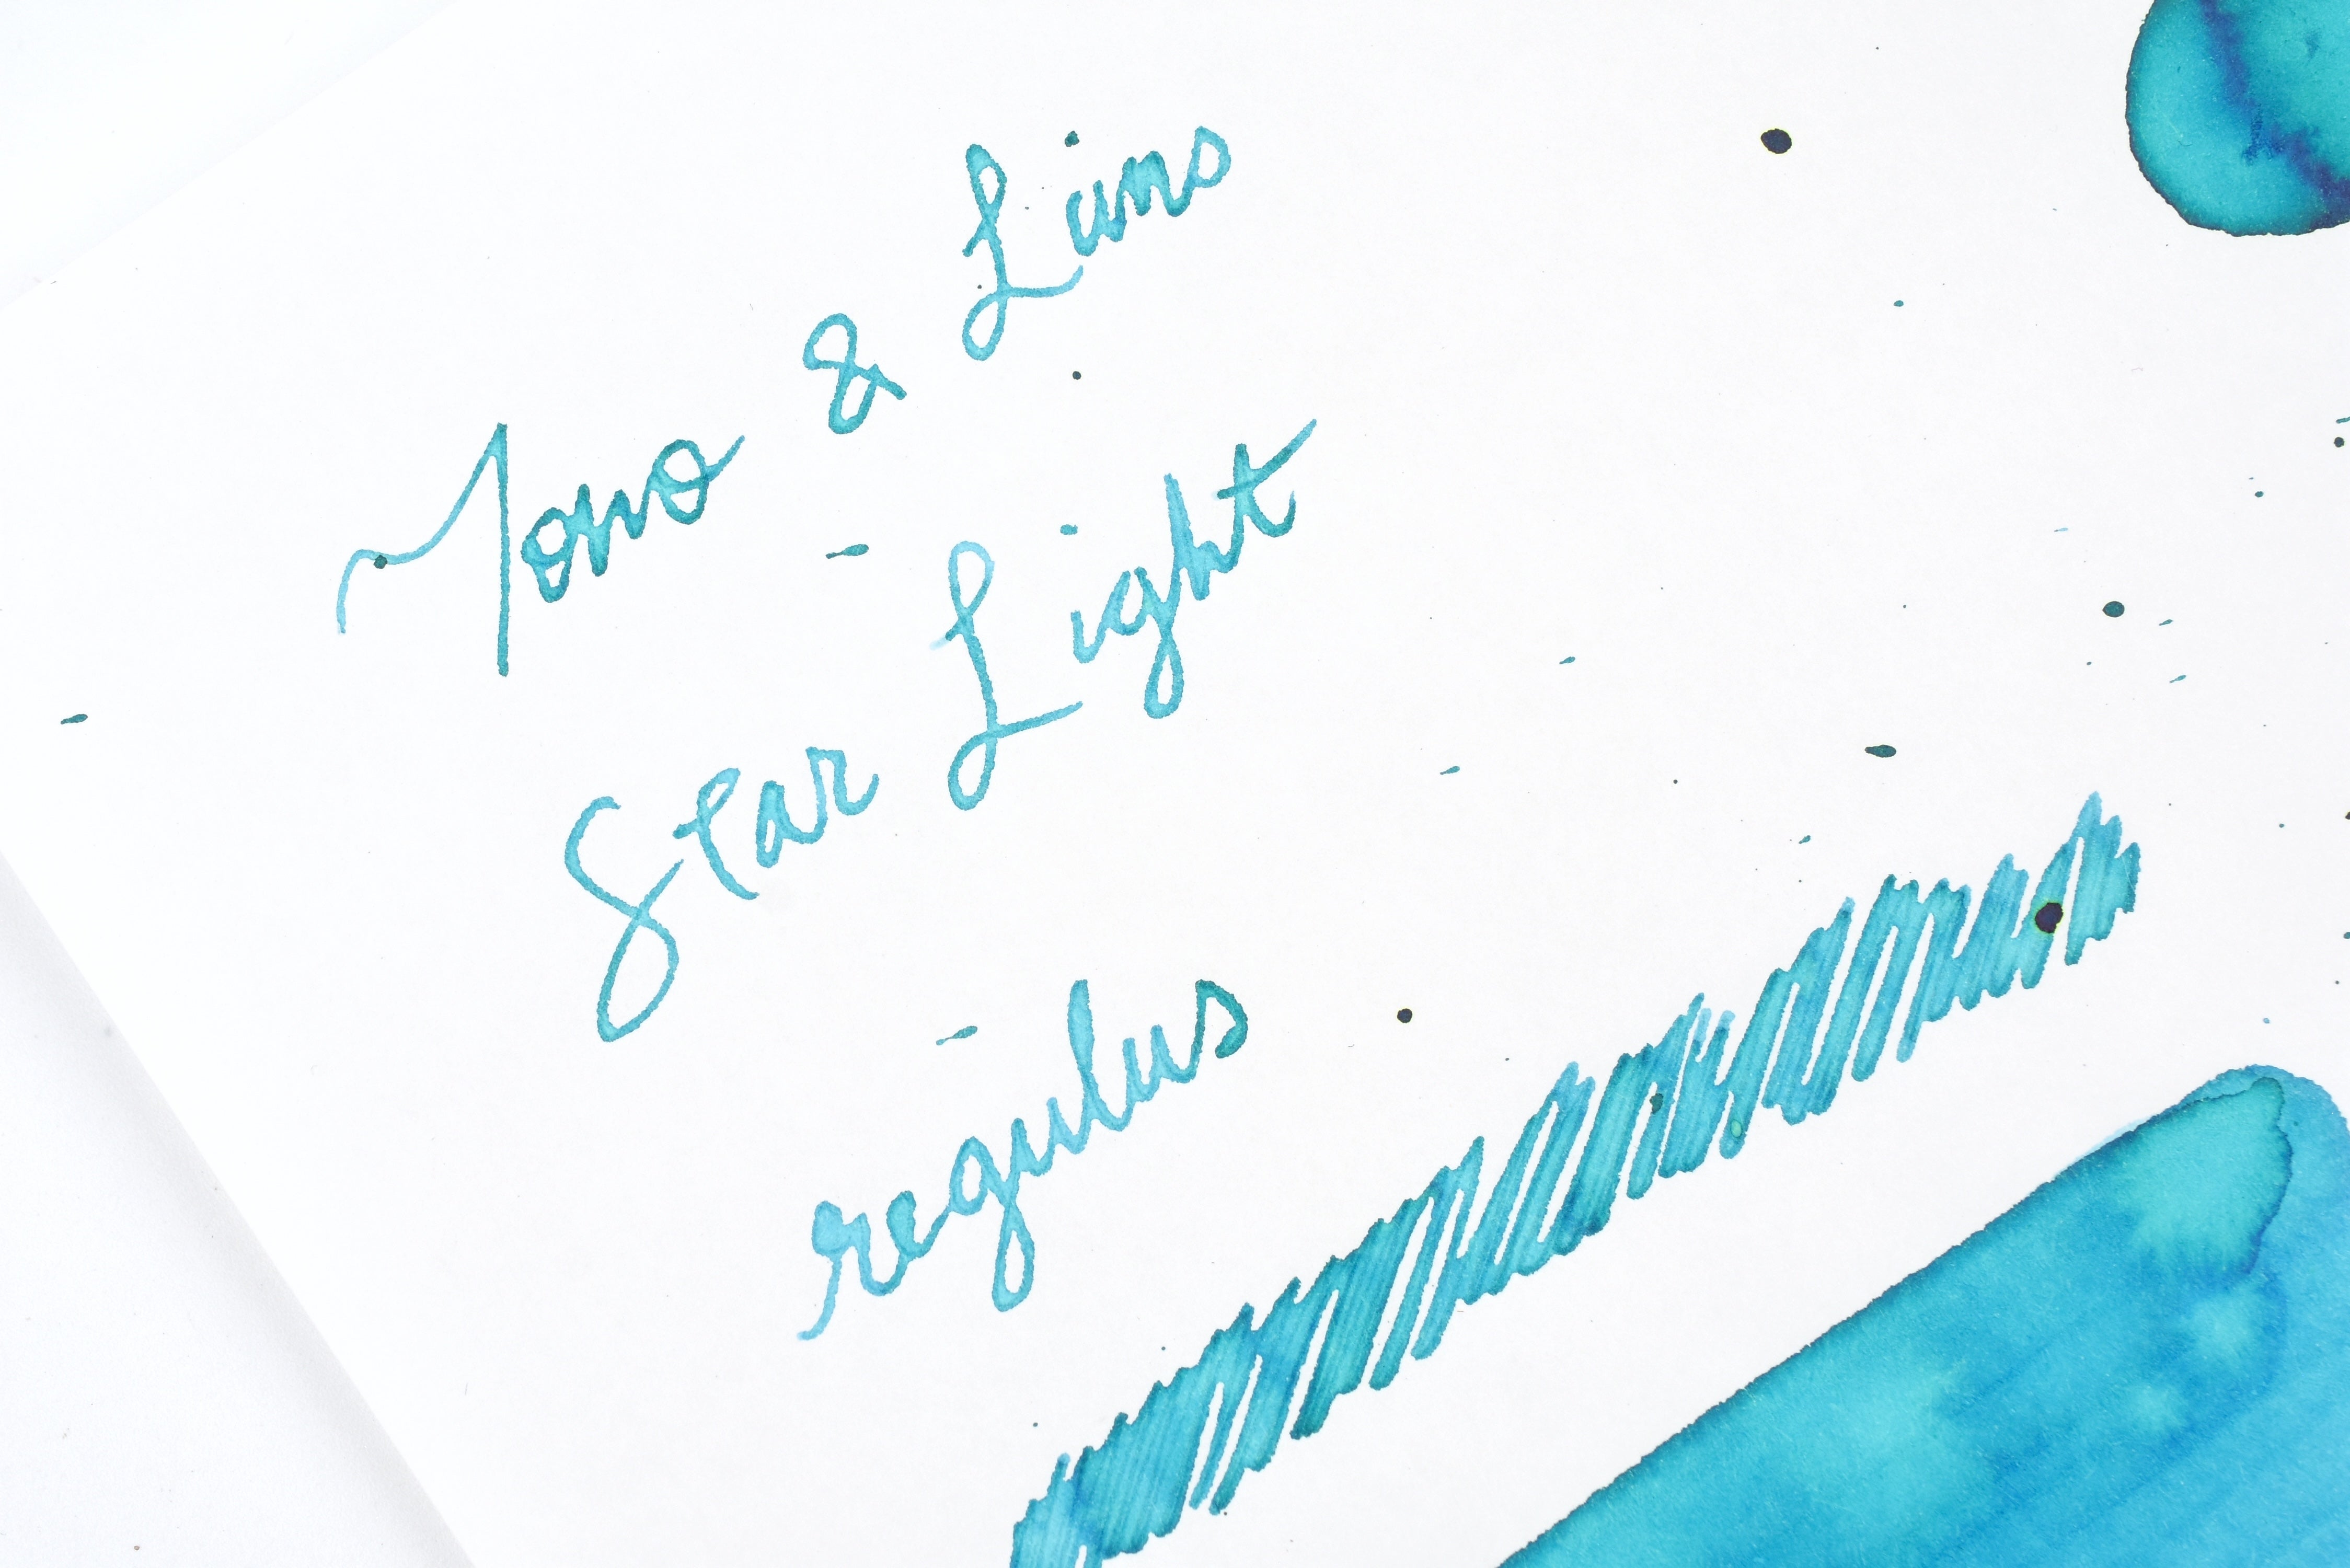 Tono & Lims
Star Light
regulus